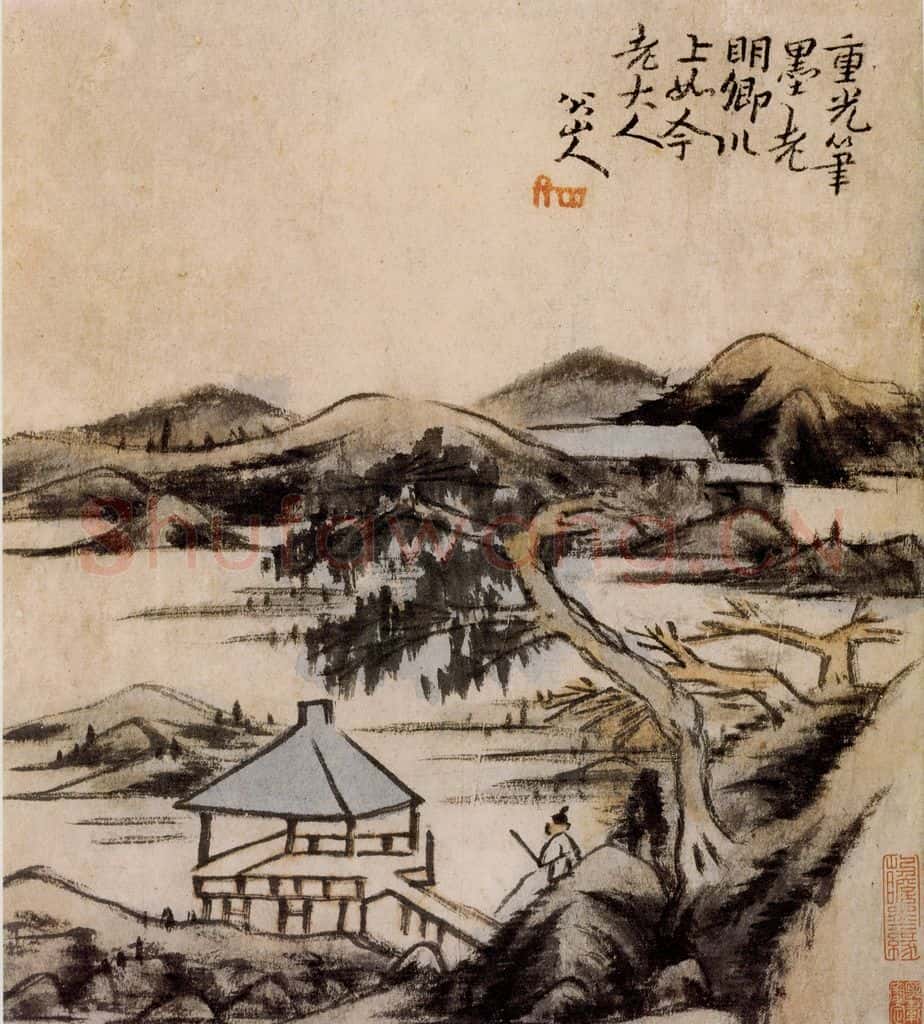 重光筆
墨老
明卿川
上如今
老大人
八大山人
Shufawang.CN